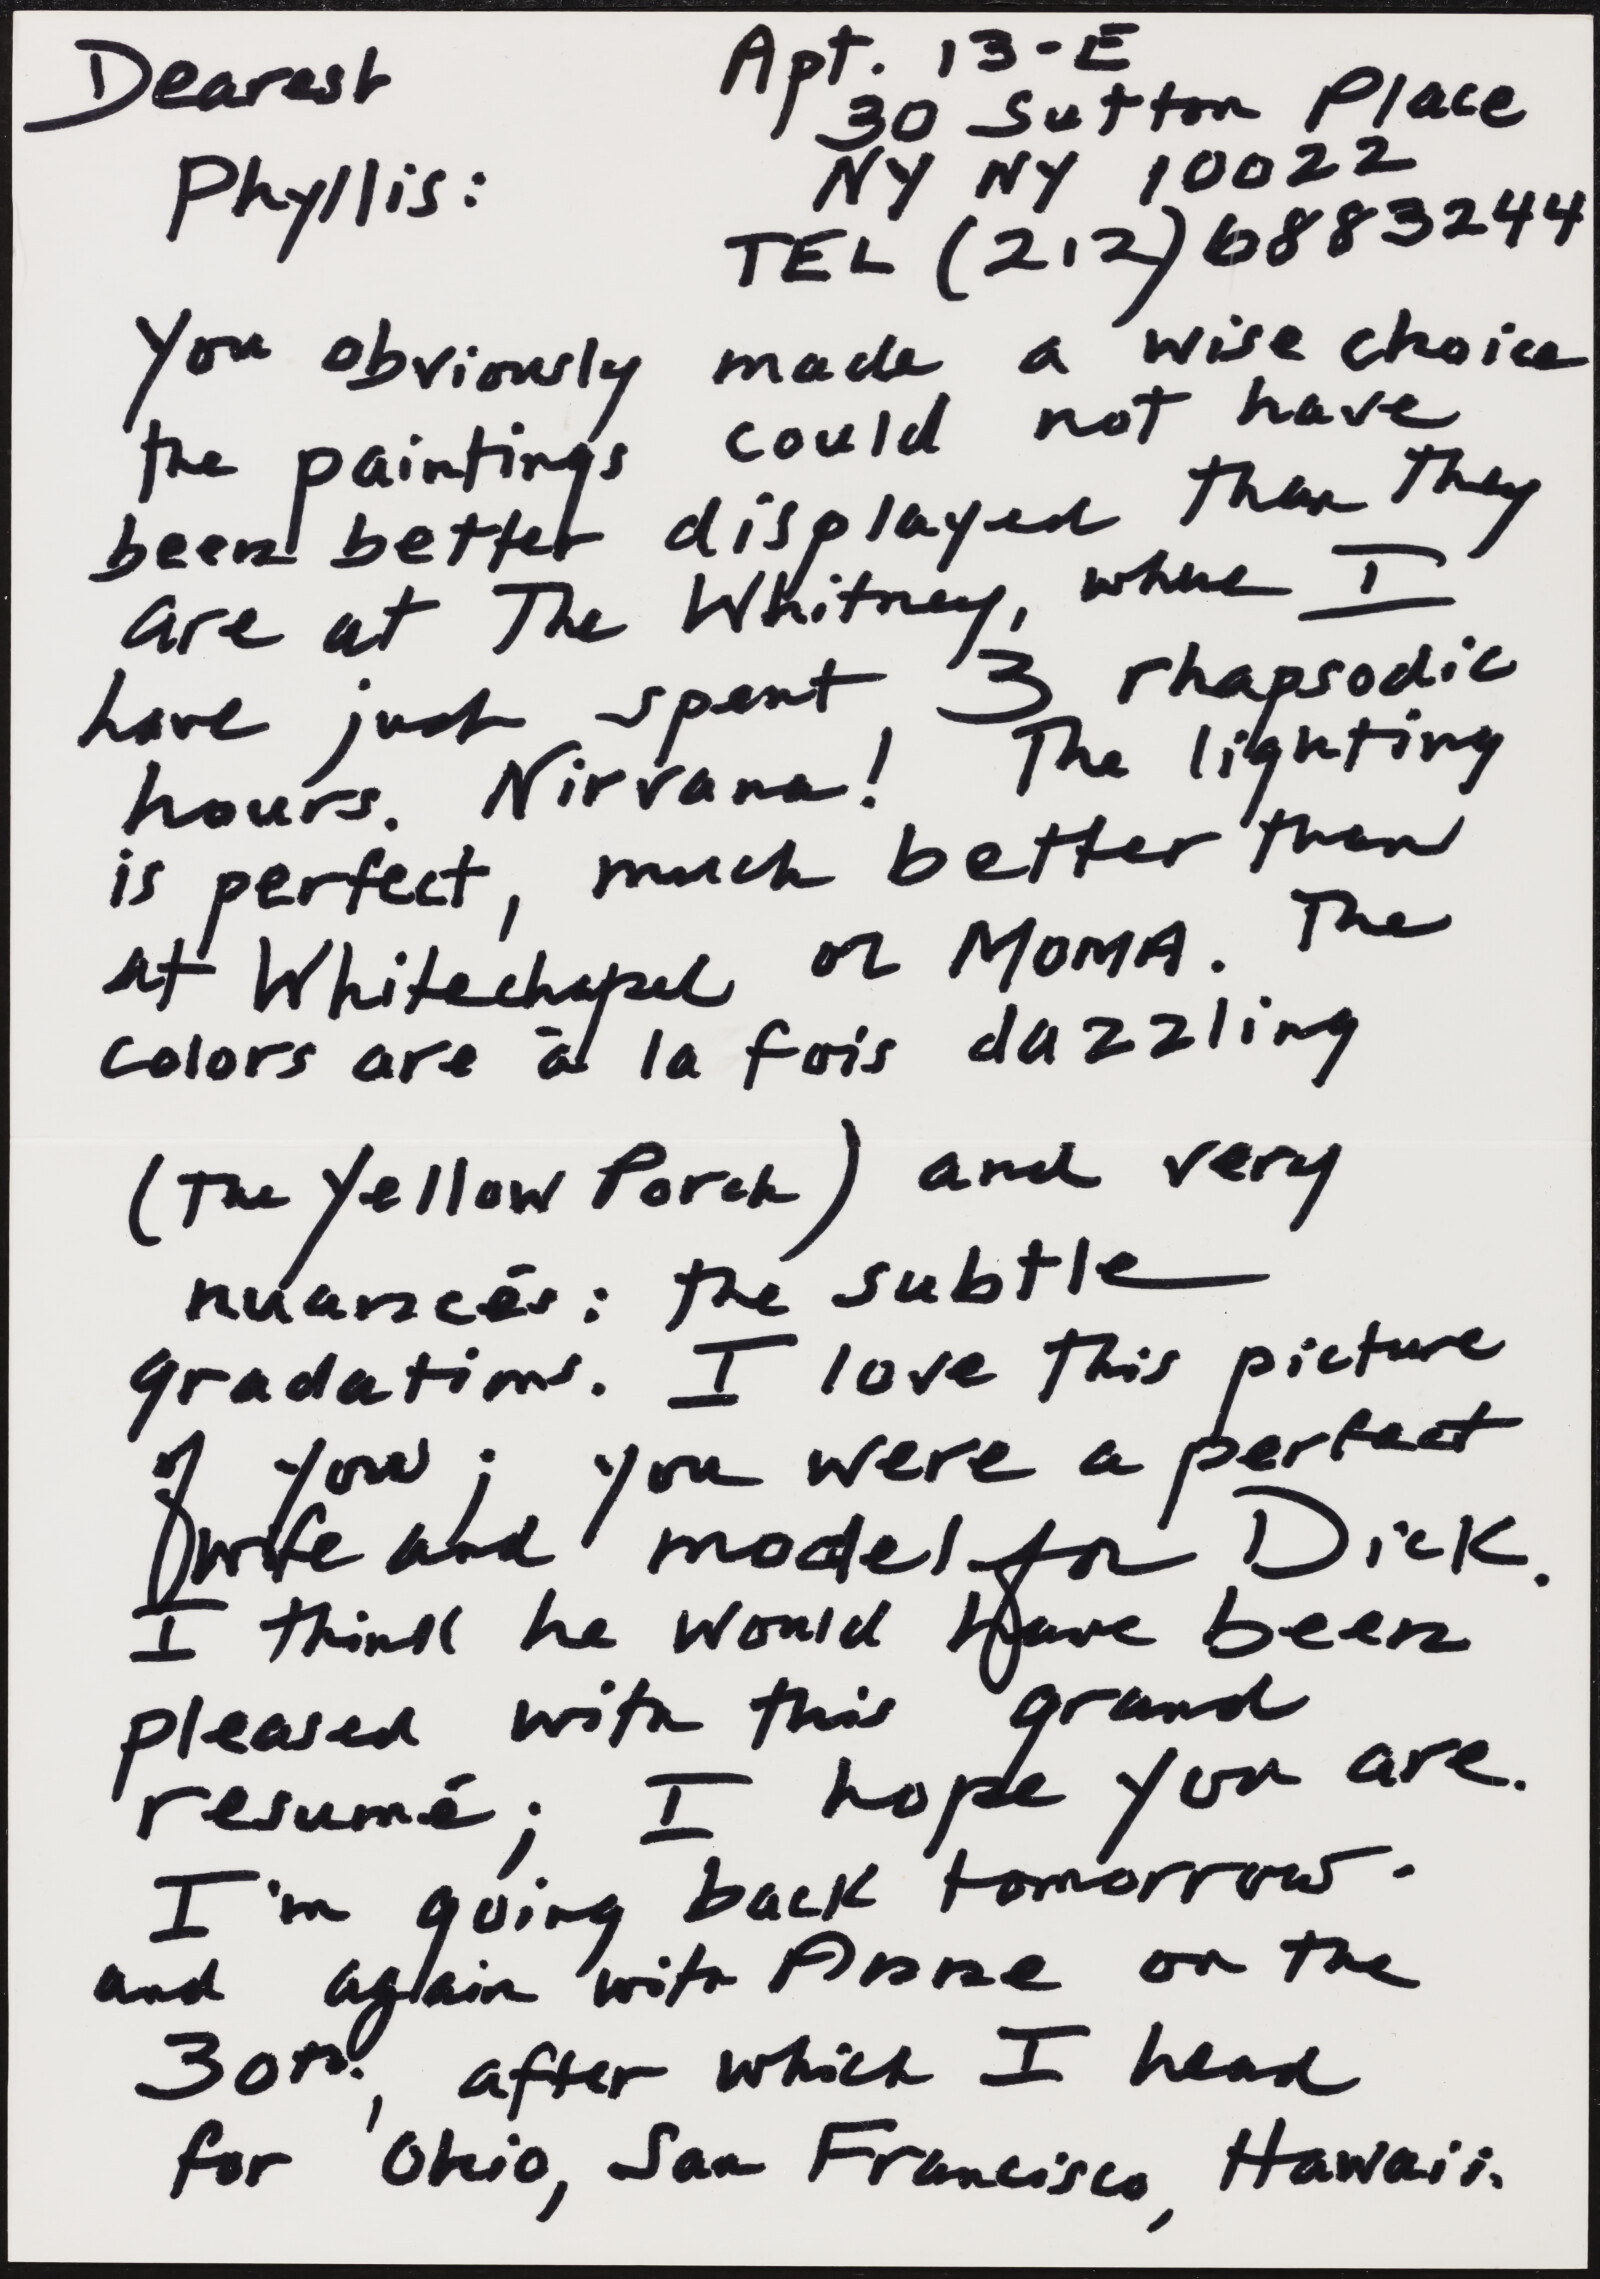 Dearest
Phyllis:
Apt. 13-E
30 Sutton Place
NY NY 10022
TEL (212) 6883244
You obviously made a wise choice
the paintings could not have
been better displayed than they
are at The Whitney, where I
have just spent 3 rhapsodic
hours. Nirvana! The lighting
is perfect, much better than
at Whitechapel or MOMA. The
colors are à la fois dazzling
(The Yellow Porch) and very
nuancés: the subtle
gradations. I love this picture
of you; you were a perfect
wife and model for Dick.
I think he would have been
pleased with this grand
resumé; I hope you are.
I'm going back tomorrow.
and again with Anne on the
30th, after which I head
for Ohio, San Francisco, Hawaii.